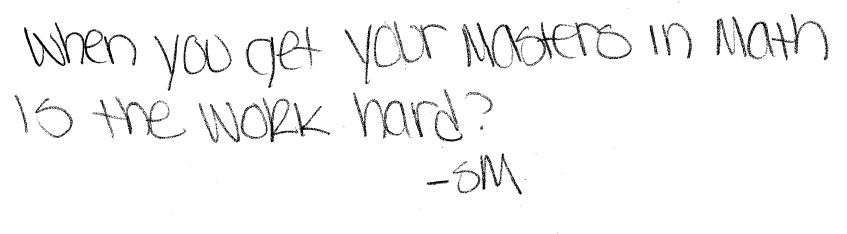 When you get your Masters in Math
is the work hard?
-SM